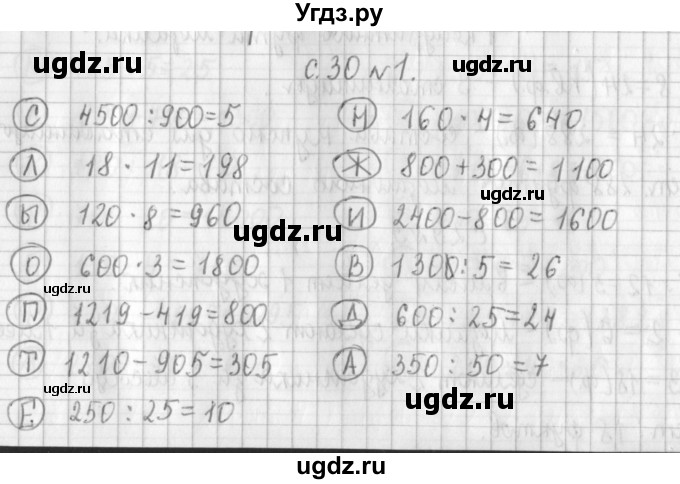 Угдз.ру
с. 30 №1.
С 4500 : 900 = 5
Л 18 · 11 = 198
Ы 120 · 8 = 960
О 600 · 3 = 1800
П 1219 - 419 = 800
Т 1210 - 905 = 305
Е 250 : 25 = 10
Н 160 · 4 = 640
Ж 800 + 300 = 1100
И 2400 - 800 = 1600
В 1300 : 5 = 26
Д 600 : 25 = 24
А 350 : 50 = 7
ugdz.ru
ugdz.ru
ugdz.ru
ugdz.ru
ugdz.ru
ugdz.ru
ugdz.ru
ugdz.ru
ugdz.ru
ugdz.ru